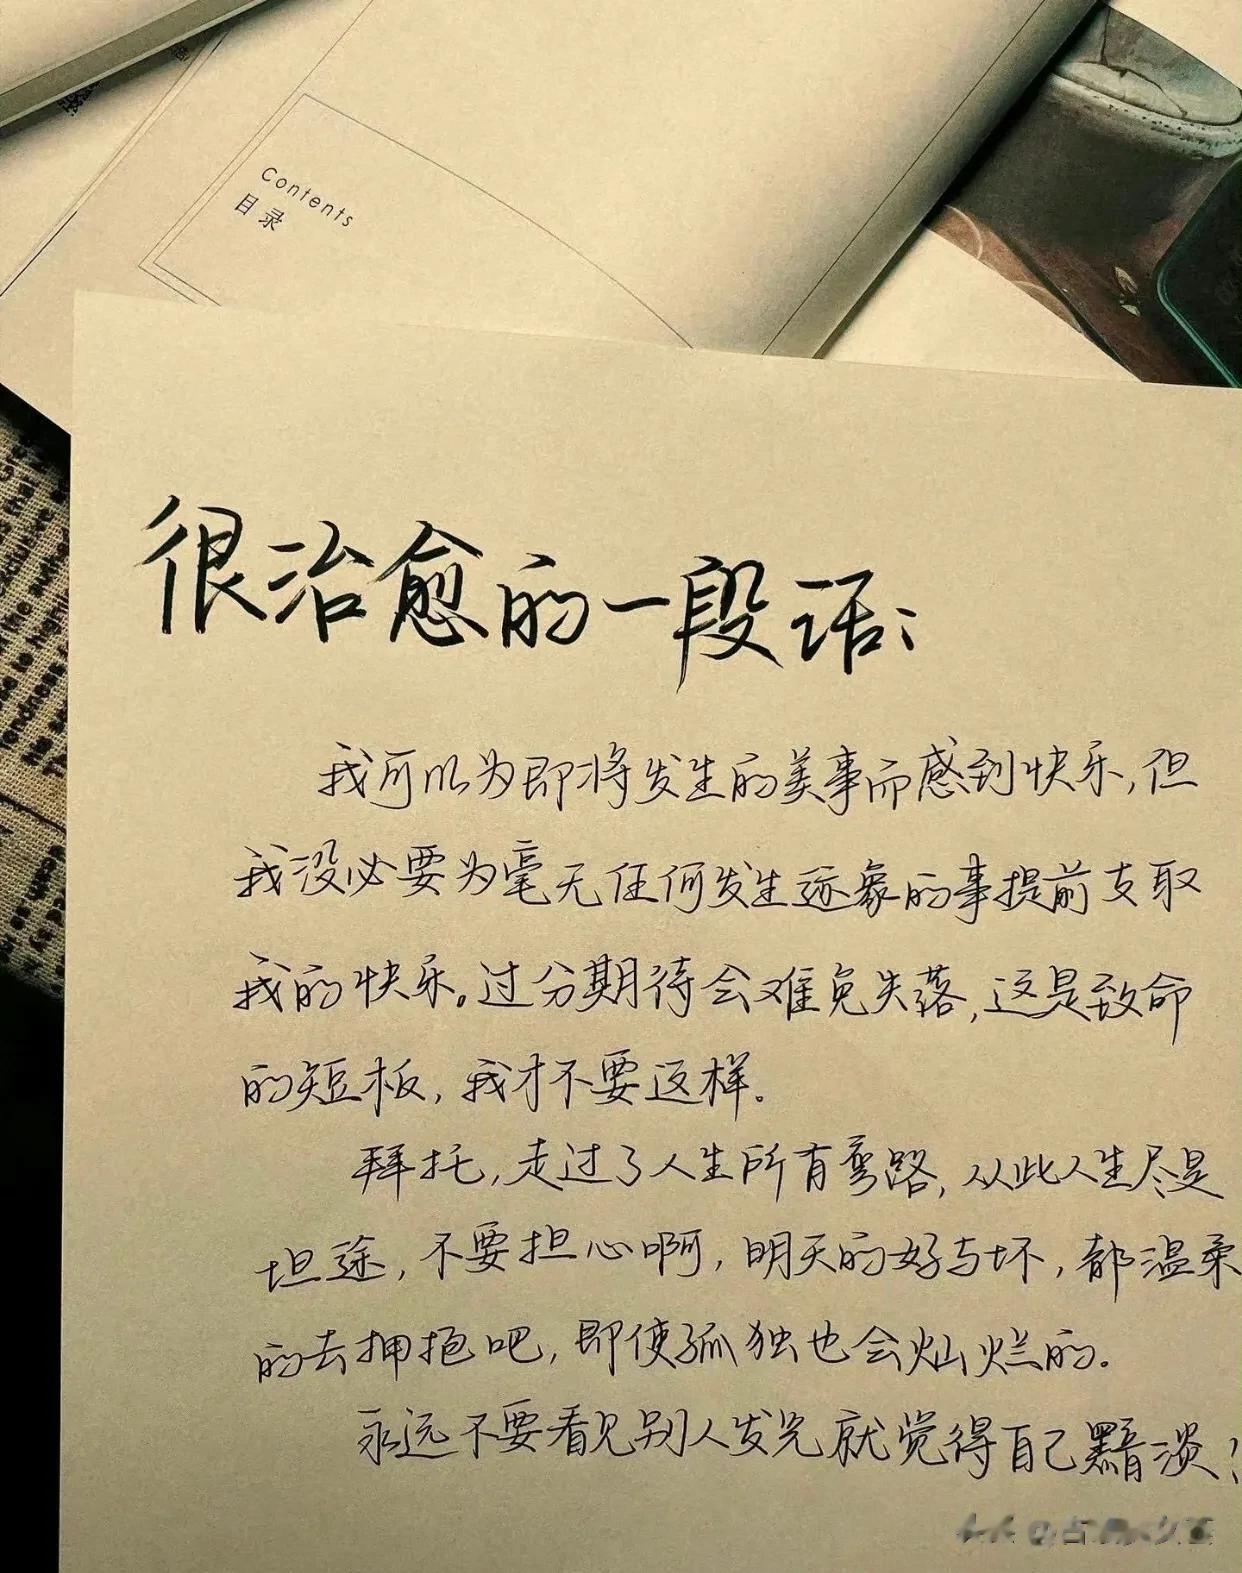 Contents
目录
很治愈的一段话:
我可以为即将发生的美事而感到快乐,但
我没必要为毫无任何发生迹象的事提前支取
我的快乐。过分期待会难免失落,这是致命
的短板,我才不要这样。
拜托,走过了人生所有弯路,从此人生尽是
坦途,不要担心啊,明天的好与坏,都温柔
的去拥抱吧,即使孤独也会灿烂的.
永远不要看见别人发光就觉得自己黯淡!